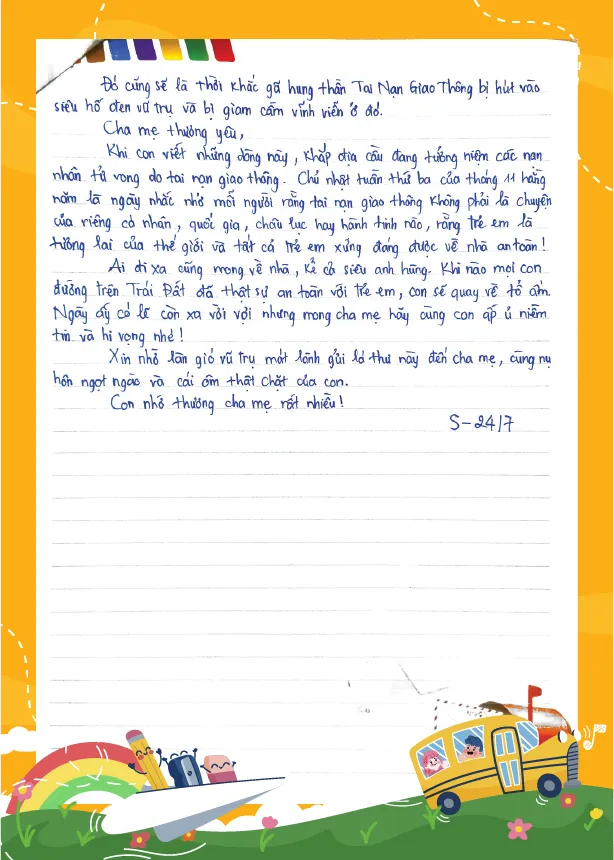 Đó cũng sẽ là thời khắc gã hung thần Tai Nạn Giao Thông bị hút vào
siêu hố đen vũ trụ và bị giam cầm vĩnh viễn ở đó.
Cha mẹ thương yêu,
Khi con viết những dòng này, khắp địa cầu đang tưởng niệm các nạn
nhân tử vong do tai nạn giao thông. Chủ nhật tuần thứ ba của tháng 11 hằng
năm là ngày nhắc nhở mỗi người rằng tai nạn giao thông không phải là chuyện
của riêng cá nhân, quốc gia, châu lục hay hành tinh nào, rằng trẻ em là
tương lai của thế giới và tất cả trẻ em xứng đáng được về nhà an toàn!
Ai đi xa cũng mong về nhà, kể cả siêu anh hùng. Khi nào mọi con
đường trên Trái Đất đã thật sự an toàn với trẻ em, con sẽ quay về tổ ấm.
Ngày ấy có lẽ còn xa vời vợi nhưng mong cha mẹ hãy cùng con ấp ủ niềm
tin và hi vọng nhé!
Xin nhờ làn gió vũ trụ mát lành gửi lá thư này đến cha mẹ, cùng nụ
hôn ngọt ngào và cái ôm thật chặt của con.
Con nhớ thương cha mẹ rất nhiều!
S-24/7